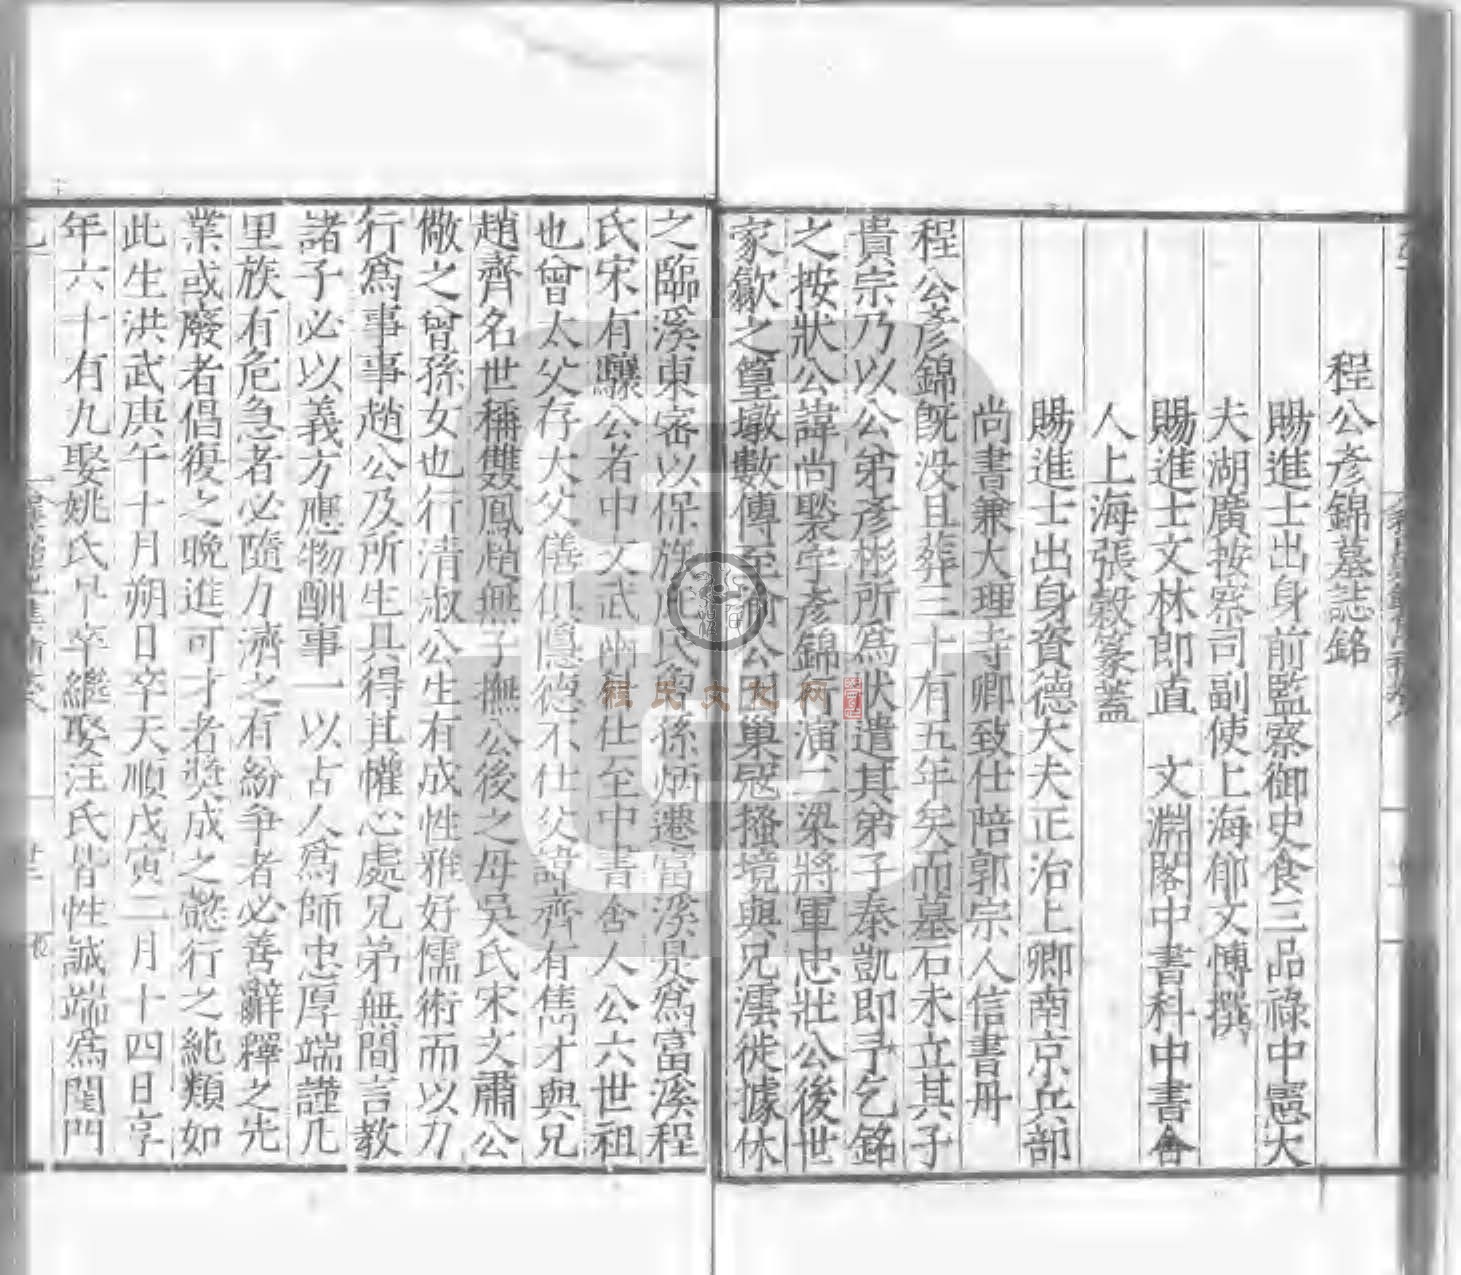 程公彥錦墓誌銘
賜進士出身前監察御史食三品祿中憲大
夫湖廣按察司副使上海郁文博撰
賜進士文林郎直 文淵閣中書科中書舍
人上海張穀篆蓋
賜進士出身資德大夫正治上卿南京兵部
尚書兼大理寺卿致仕陪郭宗人信書丹
程公彥錦旣没且葬三十有五年矣而墓石未立其子
貴宗乃以公弟彥彬所爲狀遣其弟子泰凱即予乞銘
之按狀公諱尚褧字彥錦行演二梁將軍忠壯公後世
家歙之篁墩數傳至公因巢冦搔境與兄澐徙據休
之臨溪東密以保族孫炳遷富溪是爲富溪程
氏宋有驥公者中文武兩仕至中書舍人公六世祖
也曾太父存大父僐俱隱德不仕父諱齊有雋才與兄
趙齊名世稱雙鳳趙無子撫公後之母吳氏宋文肅公
儆之曾孫女也行清淑公生有成性雅好儒術而以力
行爲事事趙公及所生具得其懽心處兄弟無間言教
諸子必以義方應物酬事一以古人爲師忠厚端謹凡
里族有危急者必隨力濟之有紛爭者必善辭釋之先
業或廢者倡復之晚進可才者奬成之懿行之純類如
此生洪武庚午十月朔日卒天順戊寅二月十四日享
年六十有九娶姚氏早卒繼娶汪氏皆性誠端爲閨門
程氏文化网